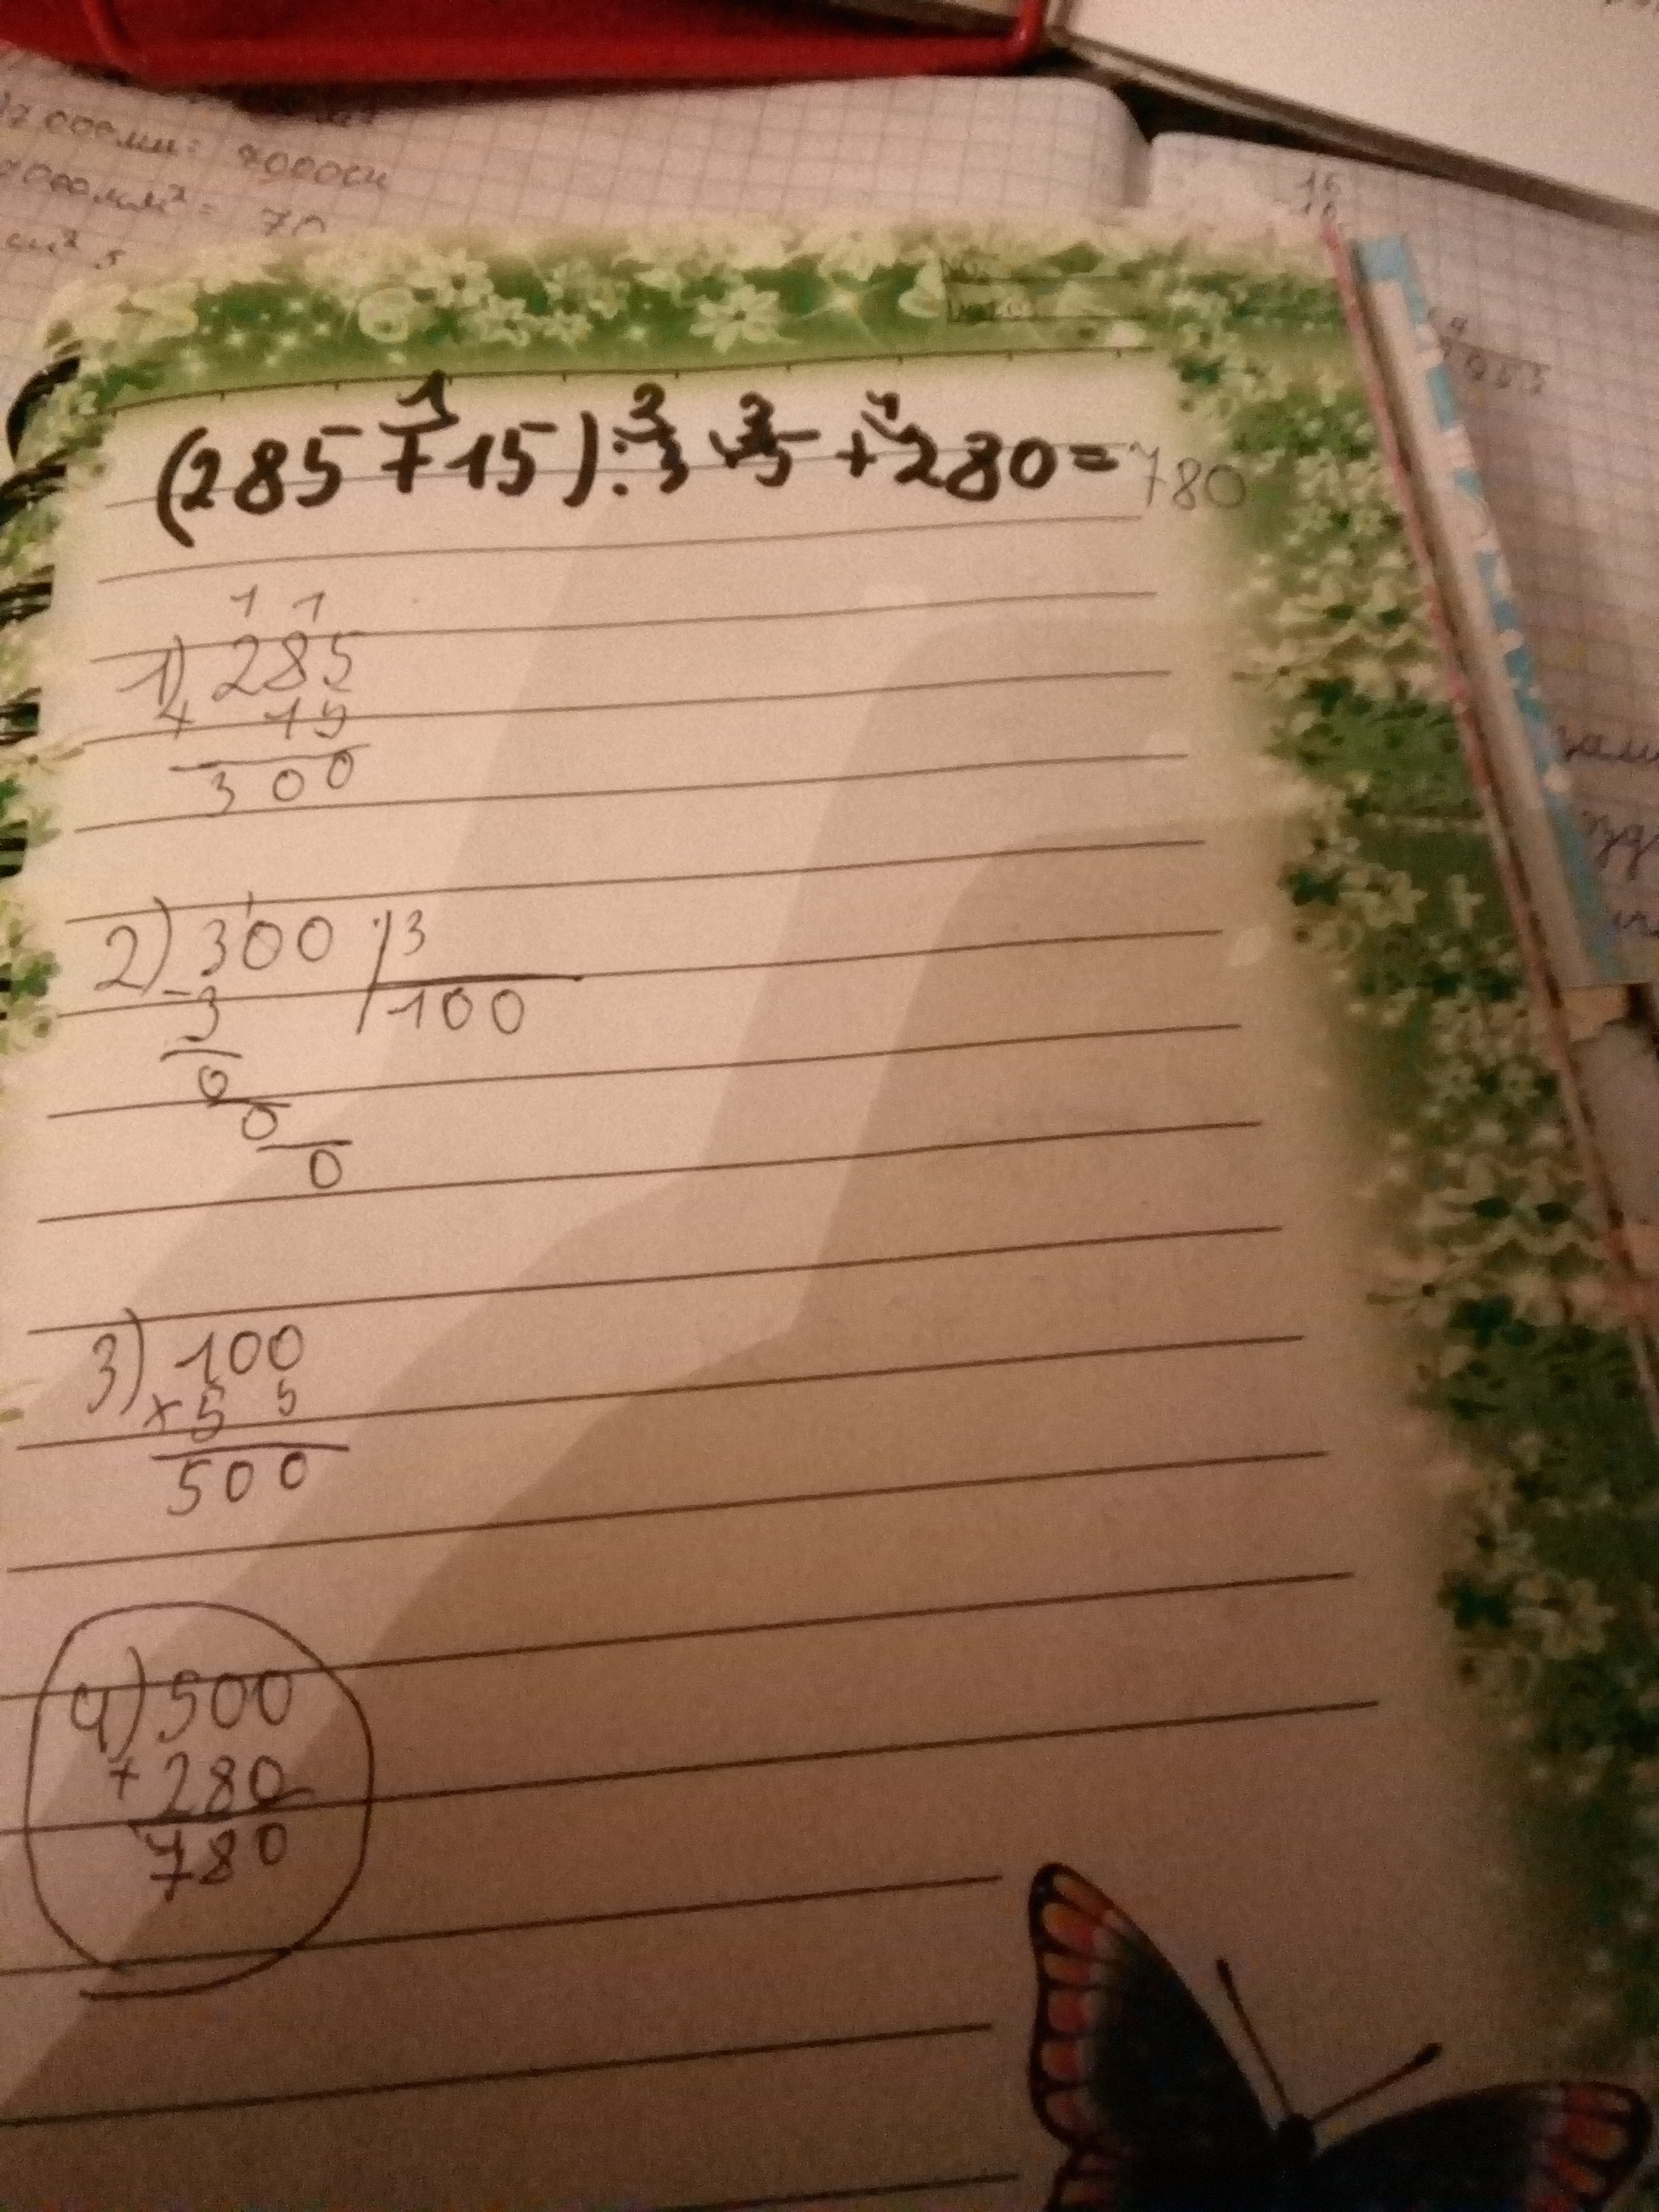 000мм = 7000см
000мм² = 70
см²
16
(285 + 15) : 3 · 5 + 280 = 780
1 2 3 4
1 1
1) 285
+ 15
300
2) 300 | 3
- 3 100
0
0
0
3) 100
× 5 5
500
4) 500
+ 280
780